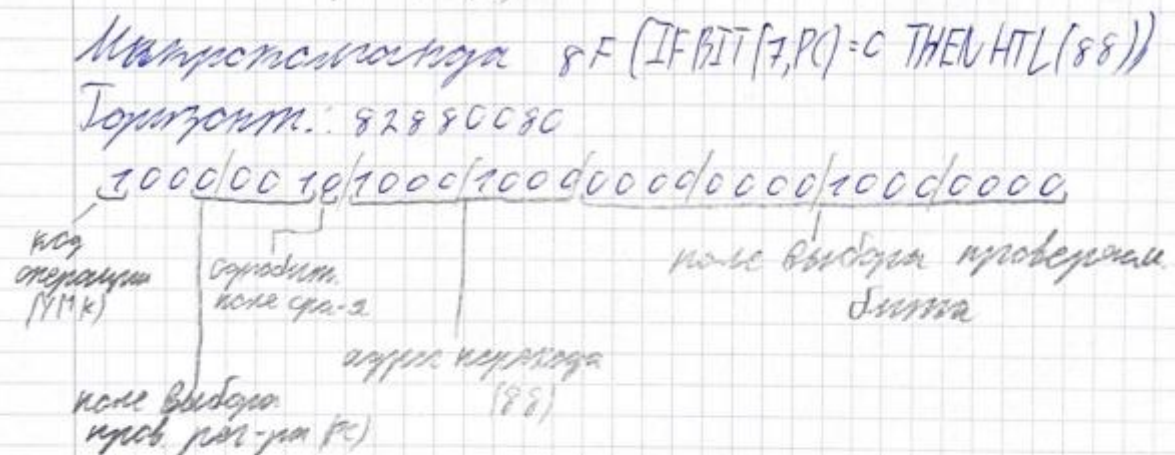 Микрокоманда 8F (IF BIT(7,PC)=0 THEN HTL(88))
Горизонт.: 82880080
1000/0010/1000/1000/0000/0000/1000/0000
код операции (УМК)
однобит. поле сра-я
поле выбора проверяем. бита
адрес перехода (88)
поле выбора пров. рег-ра (PC)